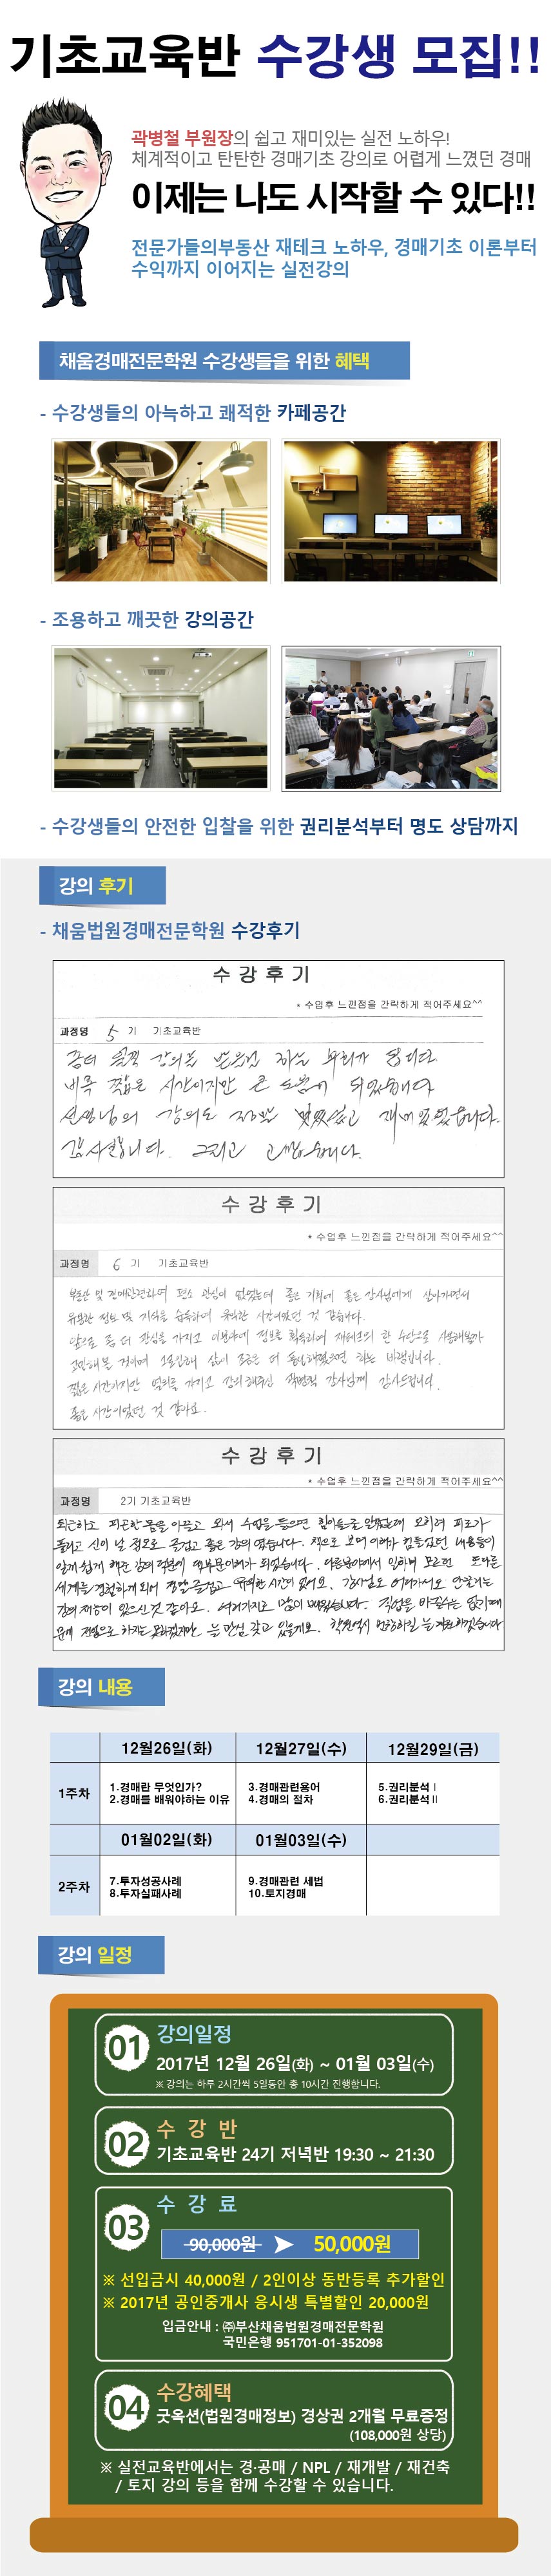 기초교육반 수강생 모집!!
곽병철 부원장의 쉽고 재미있는 실전 노하우!
체계적이고 탄탄한 경매기초 강의로 어렵게 느꼈던 경매
이제는 나도 시작할 수 있다!!
전문가들의부동산 재테크 노하우, 경매기초 이론부터
수익까지 이어지는 실전강의
채움경매전문학원 수강생들을 위한 혜택
- 수강생들의 아늑하고 쾌적한 카페공간
- 조용하고 깨끗한 강의공간
- 수강생들의 안전한 입찰을 위한 권리분석부터 명도 상담까지
강의 후기
- 채움법원경매전문학원 수강후기
수 강 후 기
* 수업후 느낀점을 간략하게 적어주세요^^
과정명 5 기 기초교육반
비록 짧은 시간이지만 큰 도움이 되었습니다
선생님의 강의도 재미있었습니다.
감사합니다. 그리고 고맙습니다.
수 강 후 기
* 수업후 느낀점을 간략하게 적어주세요^^
과정명 6 기 기초교육반
부동산 및 경매관련하여 평소 관심이 없었는데 좋은 기회에 좋은 강사님에게 살아가면서
유용한 정보 및 지식을 습득하여 유익한 시간이었던 것 같습니다.
앞으로 좀 더 관심을 가지고 정보를 획득하여 재테크의 한 수단으로
짧은 시간이지만 열의를 가지고 강의해주신 곽병철 강사님께 감사드립니다.
좋은 시간이었던 것 같아요.
수 강 후 기
* 수업후 느낀점을 간략하게 적어주세요^^
과정명 2기 기초교육반
퇴근하고 피곤한 몸을 이끌고 와서 수업을 들으면 힘이들줄 알았는데 오히려 피로가
풀리고 신이 날 정도로 즐겁고 좋은 강의 였습니다. 책으로 보면 이해가 힘들었던 내용들이
알기쉽게 해준 강의 덕분에 되었습니다. 다른분야에서 일하며 모르던 또다른
세계를 경험하게 되어 정말 즐겁고 유익한 시간이 었어요.
강의 재능이 있으신것 같아요. 여러가지로 많이 배웠습니다. 직업을 바꿀수는 없기때
문에
강의 내용
12월26일(화) 12월27일(수) 12월29일(금)
1주차 1.경매란 무엇인가? 3.경매관련용어 5.권리분석Ⅰ
2.경매를 배워야하는 이유 4.경매의 절차 6.권리분석Ⅱ
01월02일(화) 01월03일(수)
2주차 7.투자성공사례 9.경매관련 세법
8.투자실패사례 10.토지경매
강의 일정
01 강의일정
2017년 12월 26일(화) ~ 01월 03일(수)
※ 강의는 하루 2시간씩 5일동안 총 10시간 진행합니다.
02 수 강 반
기초교육반 24기 저녁반 19:30 ~ 21:30
03 수 강 료
90,000원 ➤ 50,000원
※ 선입금시 40,000원 / 2인이상 동반등록 추가할인
※ 2017년 공인중개사 응시생 특별할인 20,000원
입금안내 : ㈜부산채움법원경매전문학원
국민은행 951701-01-352098
04 수강혜택
굿옥션(법원경매정보) 경상권 2개월 무료증정
(108,000원 상당)
※ 실전교육반에서는 경·공매 / NPL / 재개발 / 재건축
/ 토지 강의 등을 함께 수강할 수 있습니다.